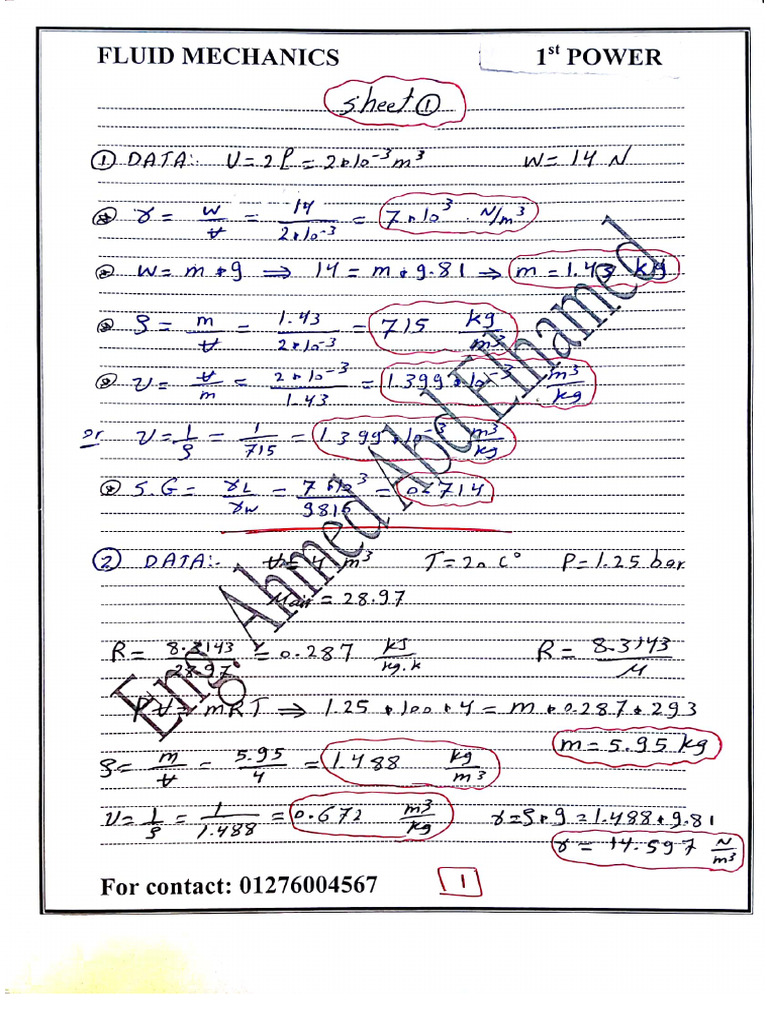 FLUID MECHANICS 1st POWER
Sheet ①
① DATA:- V = 2 l = 2*10⁻³ m³ W = 14 N
⊛ γ = W/V = 14/(2*10⁻³) = 7*10³ N/m³
⊛ W = m*g ⇒ 14 = m*9.81 ⇒ m = 1.43 kg
⊛ ρ = m/V = 1.43/(2*10⁻³) = 715 kg/m³
⊛ υ = V/m = (2*10⁻³)/1.43 = 1.399*10⁻³ m³/kg
or υ = 1/ρ = 1/715 = 1.399*10⁻³ m³/kg
⊛ S.G = γL/γW = 7*10³/9810 = 0.714
② DATA:- V = 4 m³ T = 20 C° P = 1.25 bar
Mair = 28.97
R = 8.3143/28.97 = 0.287 kJ/kg.k R = 8.3143/M
PV = mRT ⇒ 1.25*100*4 = m*0.287*293
m = 5.95 kg
ρ = m/V = 5.95/4 = 1.488 kg/m³
υ = 1/ρ = 1/1.488 = 0.672 m³/kg γ = ρ*g = 1.488*9.81
γ = 14.597 N/m³
Eng. Ahmed Abd Elhamed
For contact: 01276004567 1